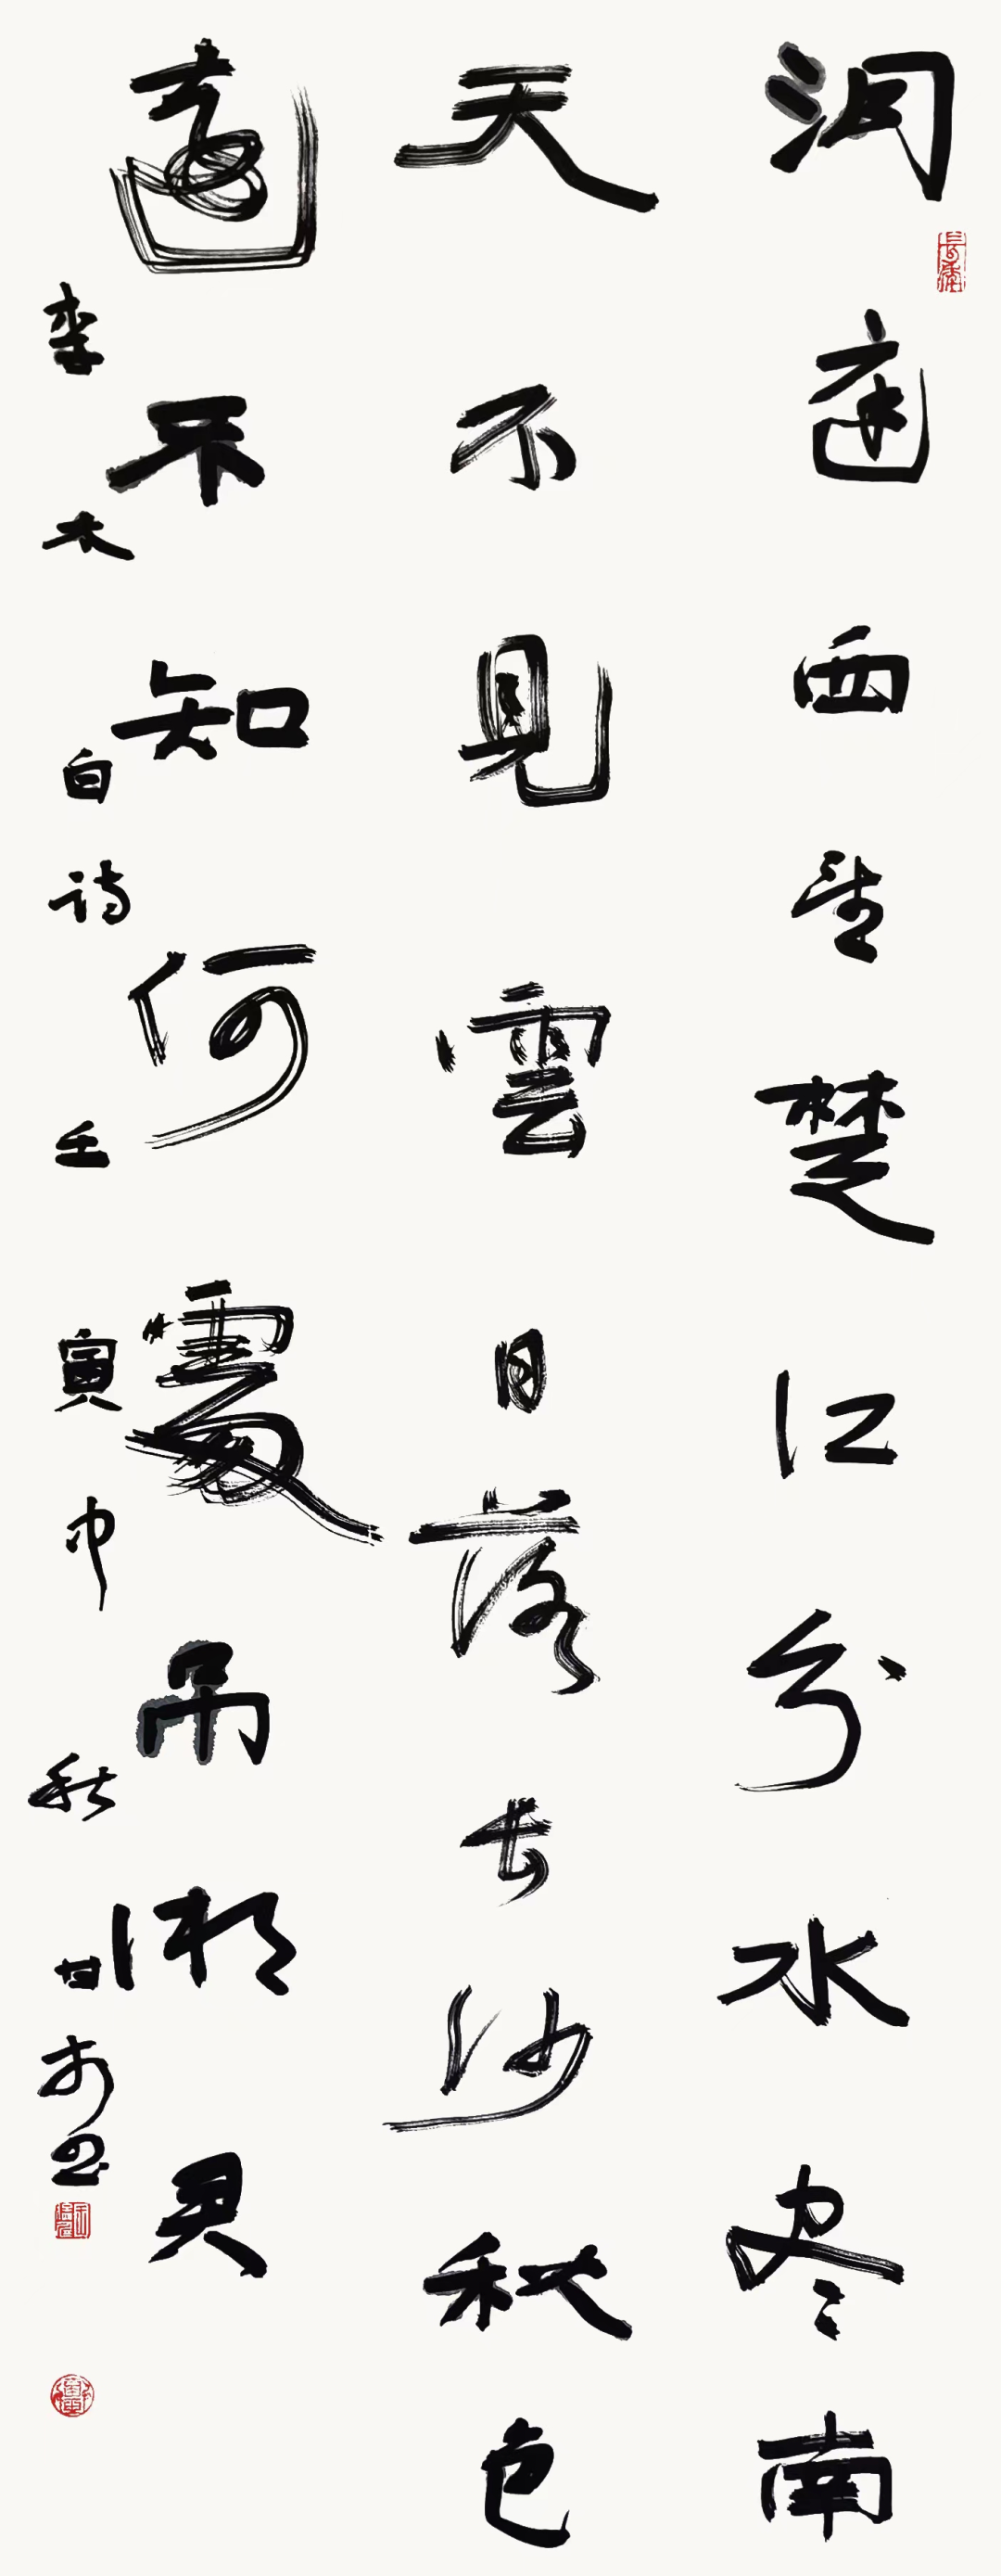 洞庭西望楚江分水尽南
天不见雲日落长沙秋色
遠不知何處吊湘君
李太白诗壬寅中秋